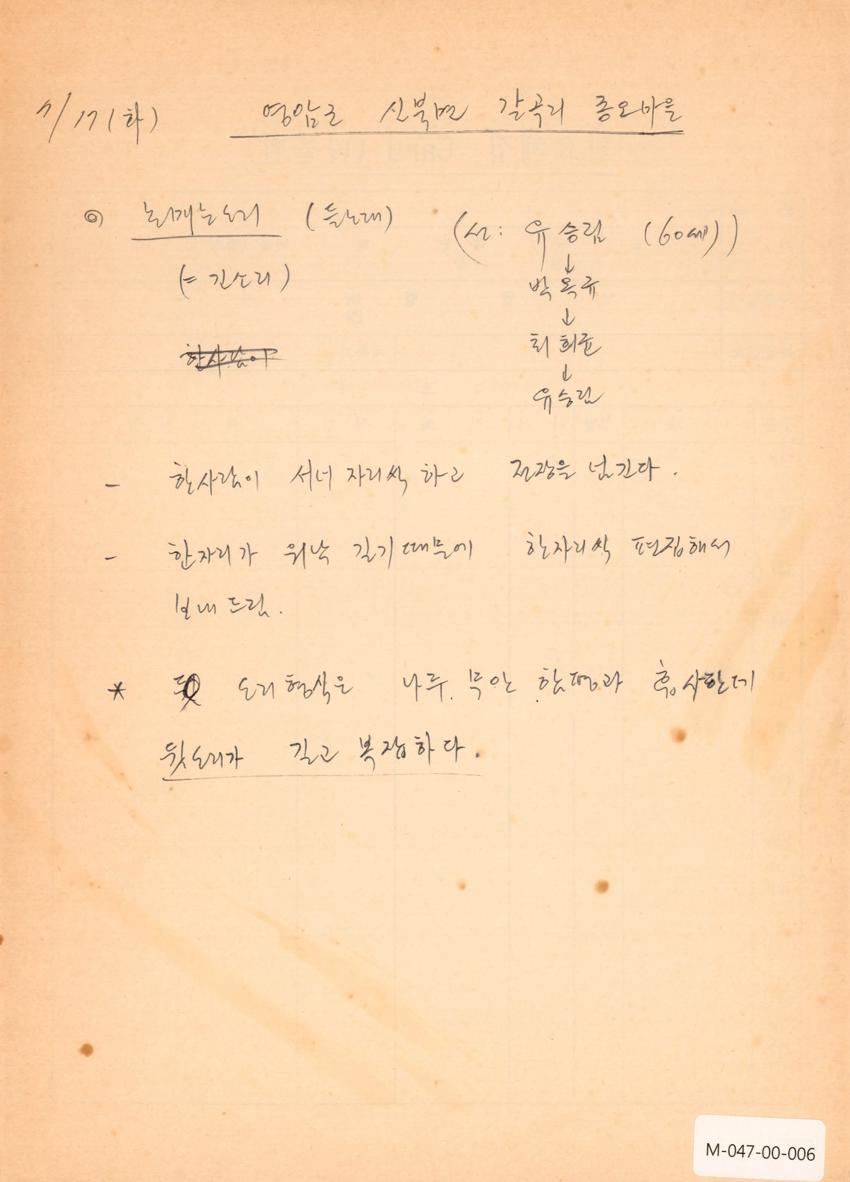 7/17 (화) 영암군 신북면 갈곡리 종오마을
◎ 논매는소리 (들노래) (선: 유승림 (60세))
(= 긴소리) ↓
박옥규
↓
한사람이 최희균
↓
유승림
- 한사람이 서너 자리씩 하고 전장을 넘긴다.
- 한자리가 워낙 길기 때문에 한자리씩 편집해서
보내 드림.
* 소리형식은 나주, 무안 함평과 유사한데
뒷소리가 길고 복잡하다.
M-047-00-006